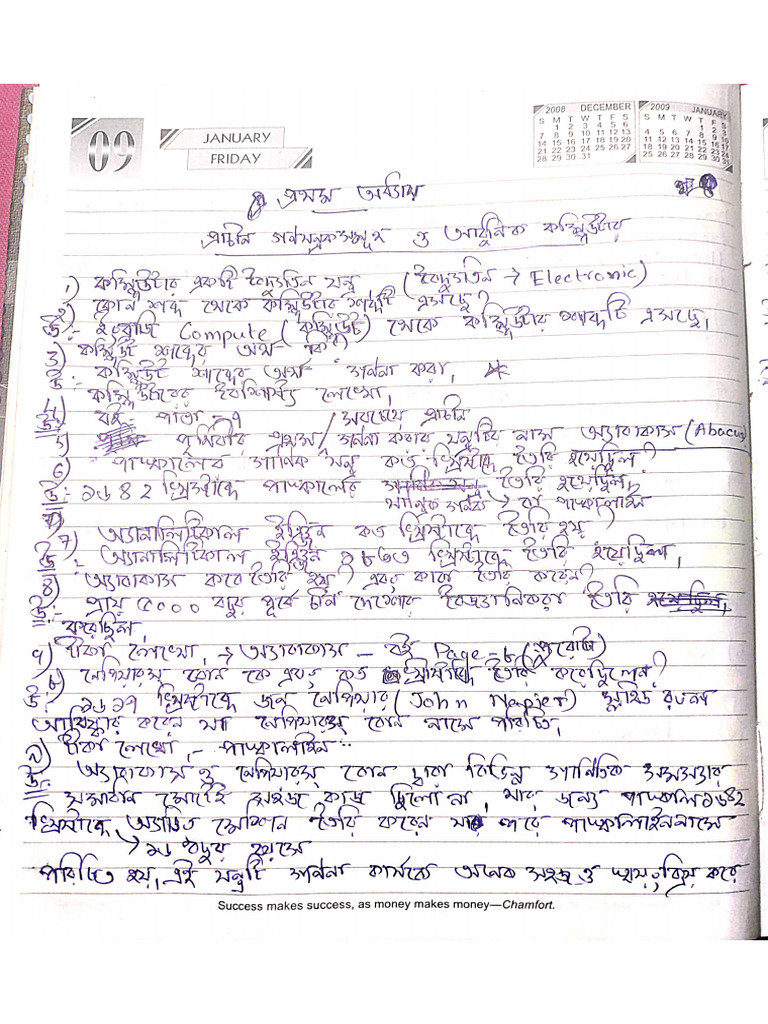 09
JANUARY
FRIDAY
2008 DECEMBER
S M T W T F S
1 2 3 4 5 6
7 8 9 10 11 12 13
14 15 16 17 18 19 20
21 22 23 24 25 26 27
28 29 30 31
2009 JANUARY
S M T W T F S
1 2 3
4 5 6 7 8 9 10
11 12 13 14 15 16 17
18 19 20 21 22 23 24
25 26 27 28 29 30 31
প্রথম অধ্যায়
প্রাচীন গণযন্ত্রকসমূহ ও আধুনিক কম্পিউটার
১) কম্পিউটার একটি বৈদ্যুতিন যন্ত্র (বৈদ্যুতিন → Electronic)
২) কোন শব্দ থেকে কম্পিউটার শব্দটি এসেছে?
উ:- ইংরাজি Compute (কম্পিউট) থেকে কম্পিউটার শব্দটি এসেছে।
3) কম্পিউট শব্দের অর্থ কি?
উ:- কম্পিউট শব্দের অর্থ গণনা করা।
4) কম্পিউটারের বৈশিষ্ট্য লেখো।
উ:- বই - পাতা - ৭
5) পৃথিবীর প্রথম/সবচেয়ে প্রাচীন গণনা করার যন্ত্রটির নাম অ্যাবাকাস (Abacus)
6) পাস্কালের গাণিক যন্ত্র কত খ্রিস্টাব্দে তৈরি হয়েছিল?
উ:- ১৬৪২ খ্রিস্টাব্দে পাস্কালের যান্ত্রিক গণক তৈরি হয়েছিল।
→ বা পাস্কালাইন
7) অ্যানালিটিকাল ইঞ্জিন কত খ্রিস্টাব্দে তৈরি হয়?
উ:- অ্যানালিটিকাল ইঞ্জিন ১৮৩৩ খ্রিস্টাব্দে তৈরি হয়েছিল।
8) অ্যাবাকাস কবে তৈরি হয়? এবং কারা তৈরি করেন?
উ:- প্রায় ৫০০০ বছর পূর্বে চীন দেশের বৈজ্ঞানিকরা তৈরি
করেছিল।
৭) টীকা লেখো, → অ্যাবাকাস - বই Page - ৮ (পুরোটা)
৮) নেপিয়ারস্ বোন কে এবং কত খ্রীস্টাব্দে তৈরি করেছিলেন?
উ:- ১৬১৭ খ্রিস্টাব্দে জন নেপিয়ার (John Napier) স্লাইড রুলস
আবিষ্কার করেন যা নেপিয়ারস্ বোন নামে পরিচিত।
৯) টীকা লেখো,- পাস্কালাইন
উ:- অ্যাবাকাস ও নেপিয়ারস্ বোন দ্বারা বিভিন্ন গাণিতিক সমস্যার
সমাধান মোটেই সহজ কাজ ছিলো না, যার জন্য পাস্কাল ১৬৪২
খ্রিস্টাব্দে অ্যাডিং মেশিন তৈরি করেন যা পরে পাস্কালাইন নামে
→ ১৯ বছর বয়সে
পরিচিত হয়, এই যন্ত্রটি গণনা কার্যকে অনেক সহজ ও করে
Success makes success, as money makes money—Chamfort.